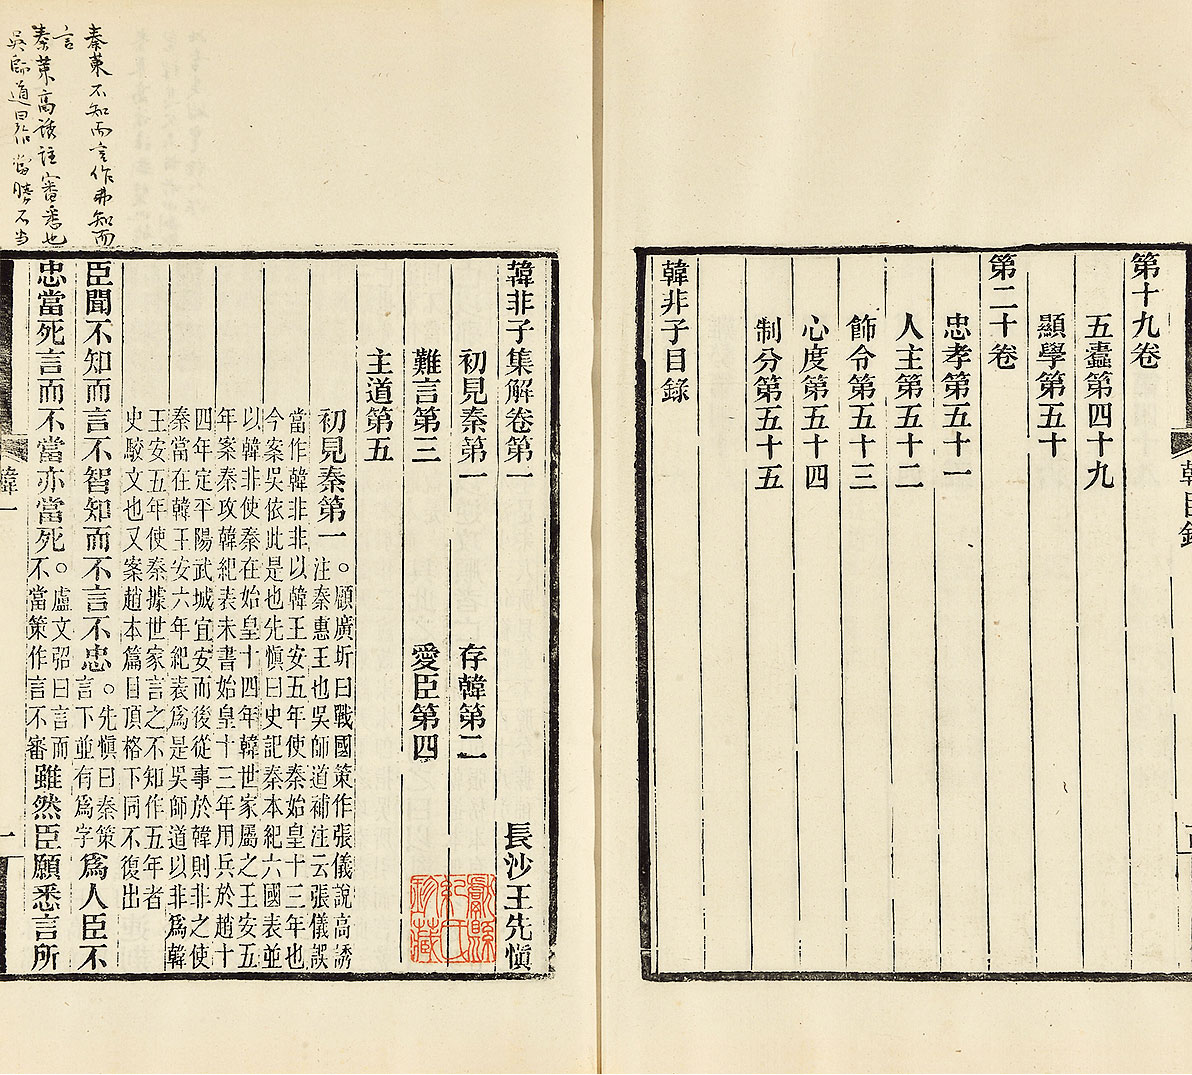 第十九卷
五蠹第四十九
顯學第五十
第二十卷
忠孝第五十一
人主第五十二
飾令第五十三
心度第五十四
制分第五十五
韓非子目錄
韓目錄
韓非子集解卷第一 長沙王先慎
初見秦第一 存韓第二
難言第三 愛臣第四
主道第五
初見秦第一。顧廣圻曰戰國策作張儀說高誘
注秦惠王也吳師道補注云張儀誤
當作韓非非以韓王安五年使秦始皇十三年也
今案吳依此是也先慎曰史記秦本紀六國表並
以韓非使秦在始皇十四年韓世家屬之王安五
年案秦攻韓紀表未書始皇十三年用兵於趙十
四年定平陽武城宜安而後從事於韓則非之使
秦當在韓王安六年紀表爲是吳師道以非爲韓
王安五年使秦據世家言之不知作五年者
史駮文也又案趙本篇目頂格下同不復出
臣聞不知而言不智知而不言不忠。先慎曰秦策言下並有爲字爲人臣不
忠當死言而不當亦當死。盧文弨曰言而不當策作言不審雖然臣願悉言所
韓一
一
秦策不知而言作弗知而
言
秦策高誘註審悉也
吳師道曰當勝不当